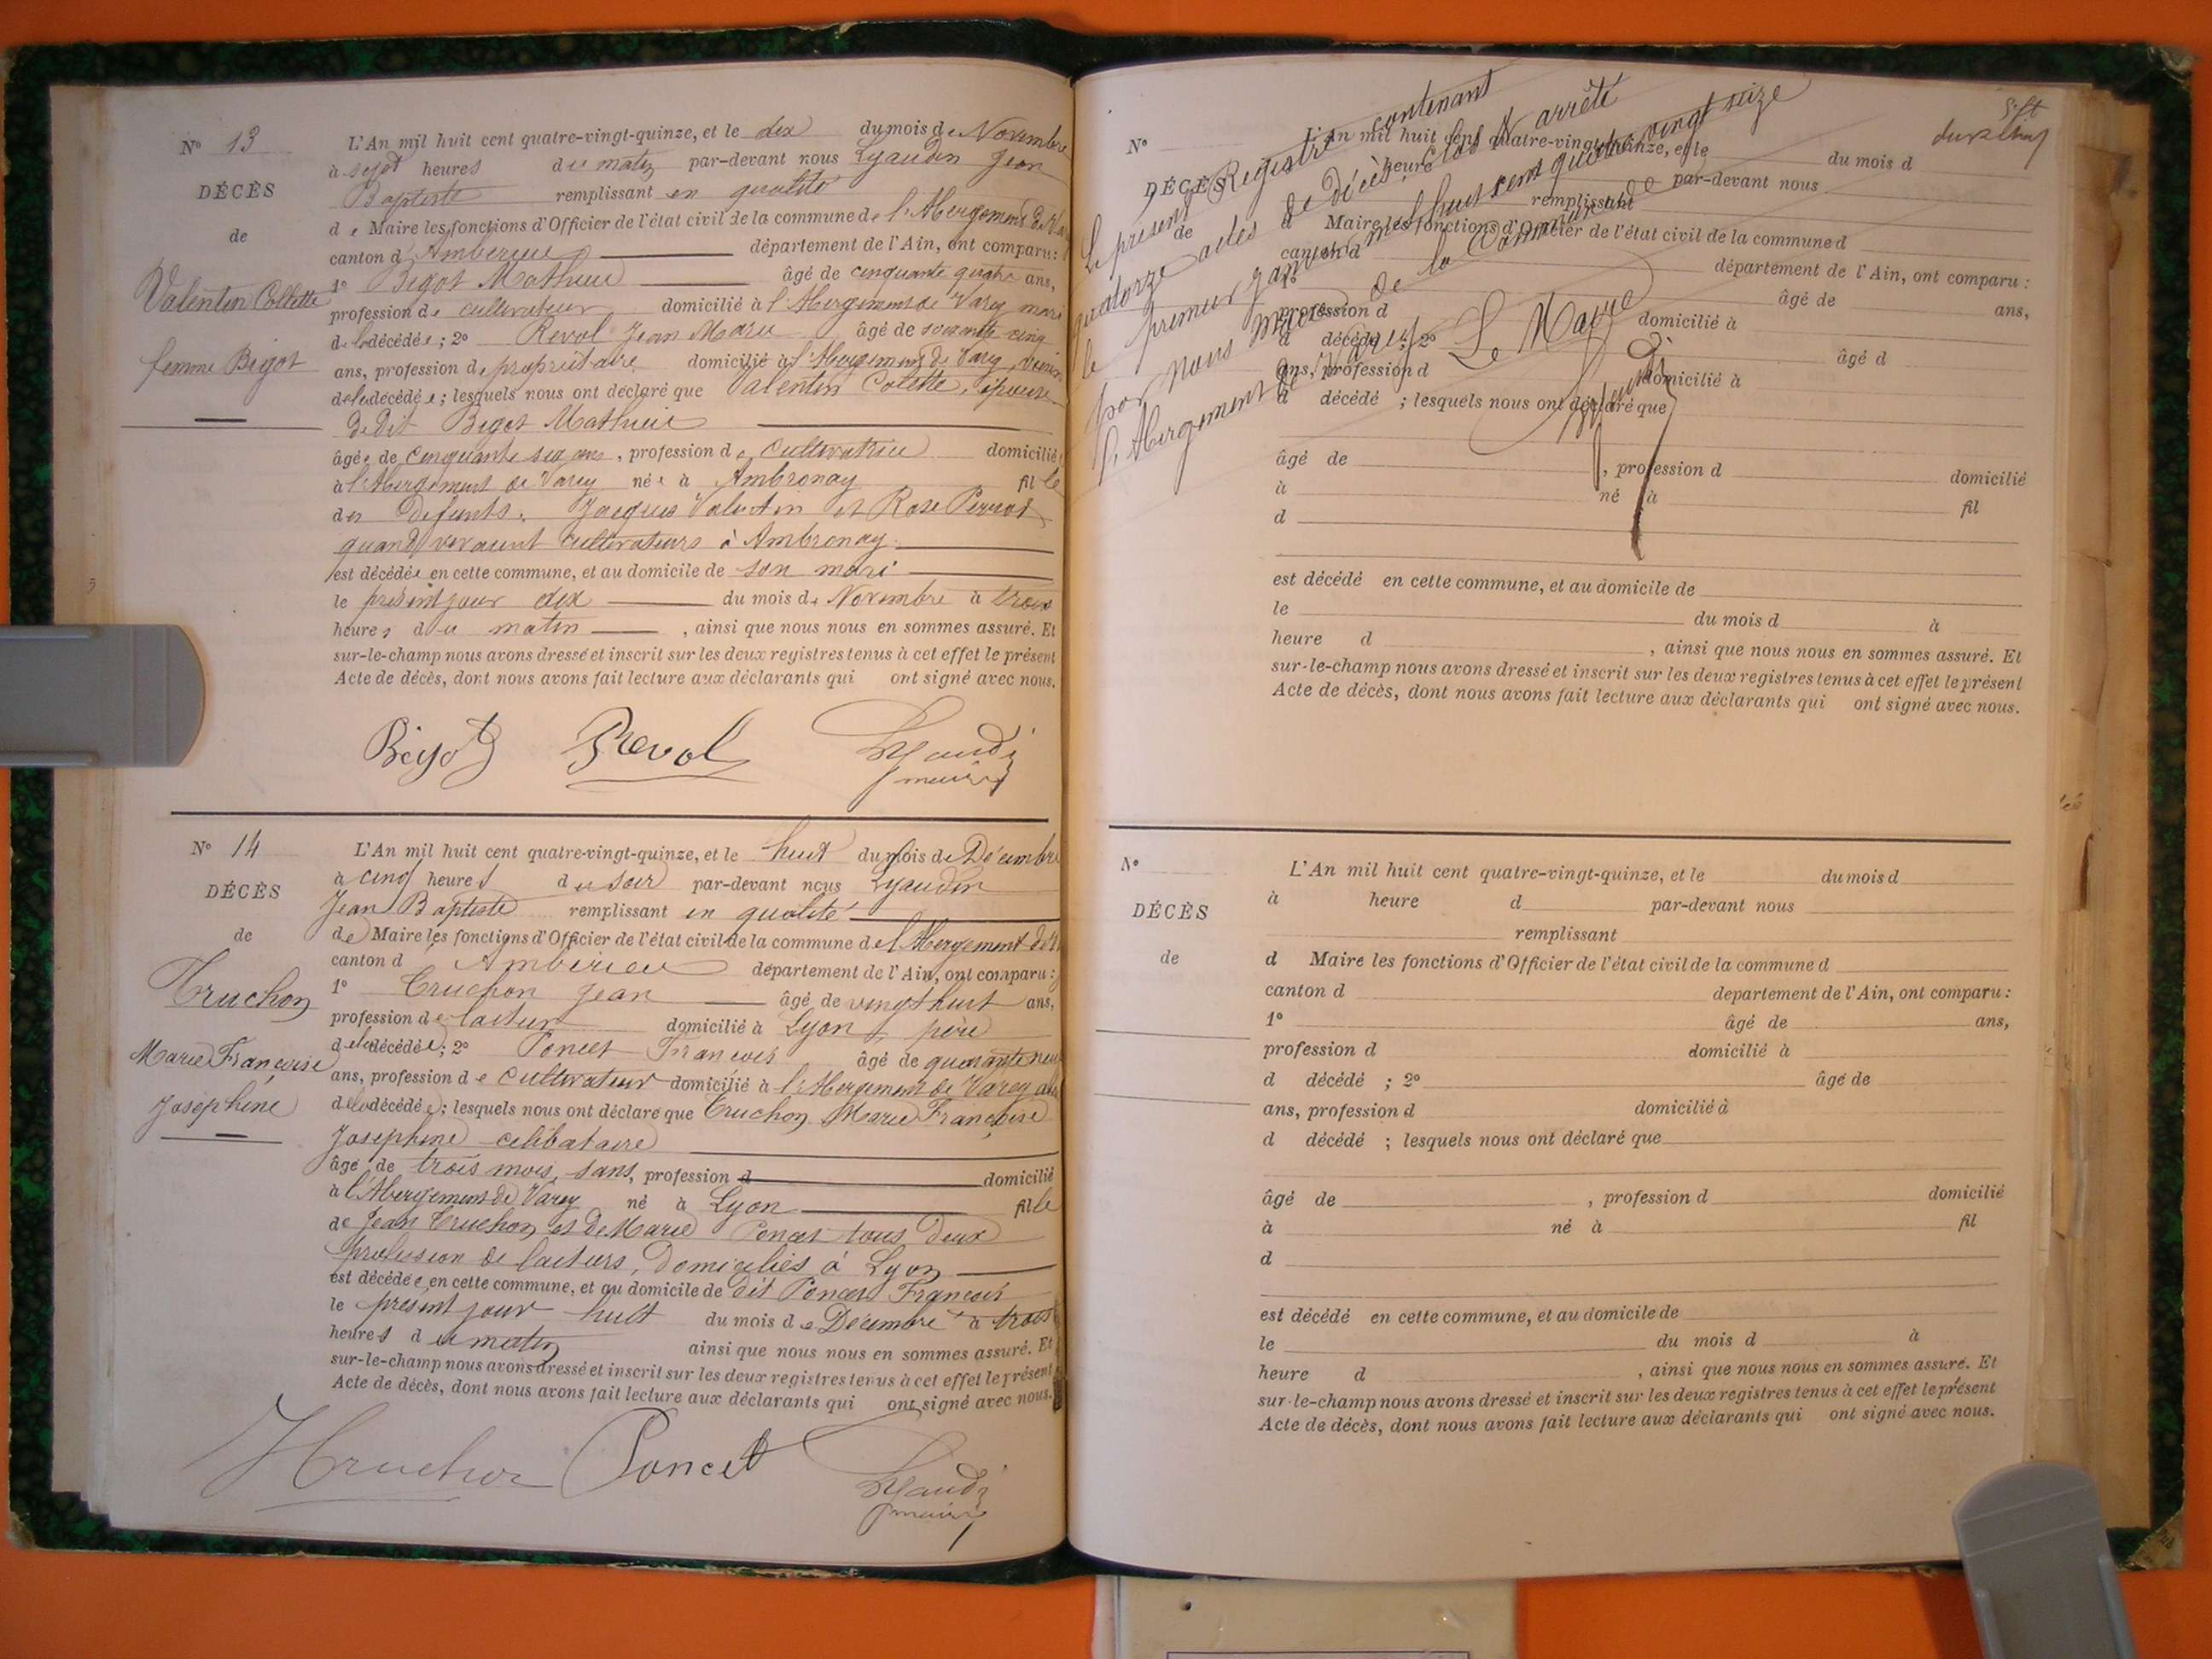 N° 13
DÉCÈS
de
Valentin Collette
femme Bigot
L'An mil huit cent quatre-vingt-quinze, et le dix du mois de Novembre
à sept heures du matin par-devant nous Lyaudin Jean
Baptiste remplissant en qualité
de Maire les fonctions d'Officier de l'état civil de la commune de l'Abergement de
canton d'Ambérieu département de l'Ain, ont comparu :
1° Bigot Mathieu âgé de cinquante quatre ans,
profession de cultivateur domicilié à l'Abergement de Varey mari
de la décédée ; 2° Revol Jean Marie âgé de soixante cinq
ans, profession de propriétaire domicilié à l'Abergement de Varey, voisin
de la décédée ; lesquels nous ont déclaré que Valentin Colette, épouse
de dit Bigot Mathieu
âgée de cinquante six ans, profession de cultivatrice domicilié
à l'Abergement de Varey née à Ambronay fille
des défunts Jacques Valentin et Rose Pernot
quand vivaient cultivateurs à Ambronay
est décédée en cette commune, et au domicile de son mari
le présent jour dix du mois de Novembre à trois
heures du matin, ainsi que nous nous en sommes assuré. Et
sur-le-champ nous avons dressé et inscrit sur les deux registres tenus à cet effet le présent
Acte de décès, dont nous avons fait lecture aux déclarants qui ont signé avec nous.
Bigot Revol Lyaudin
maire
N° 14
DÉCÈS
de
Truchon
Marie Françoise
Joséphine
L'An mil huit cent quatre-vingt-quinze, et le huit du mois de Décembre
à cinq heures du soir par-devant nous Lyaudin
Jean Baptiste remplissant en qualité
de Maire les fonctions d'Officier de l'état civil de la commune de l'Abergement de
canton d Ambérieu département de l'Ain, ont comparu :
1° Truchon Jean âgé de vingt huit ans,
profession de facteur domicilié à Lyon, père
de la décédée ; 2° Poncet François âgé de quarante neuf
ans, profession de cultivateur domicilié à l'Abergement de Varey
de la décédée ; lesquels nous ont déclaré que Truchon Marie Françoise
Joséphine célibataire
âgé de trois mois, sans, profession d domicilié
à l'Abergement de Varey né à Lyon fille
de Jean Truchon et de Marie Poncet tous deux
profession de facteurs, domiciliés à Lyon
est décédée en cette commune, et au domicile de dit Poncet François
le présent jour huit du mois de Décembre à trois
heures du matin ainsi que nous nous en sommes assuré. Et
sur-le-champ nous avons dressé et inscrit sur les deux registres tenus à cet effet le présent
Acte de décès, dont nous avons fait lecture aux déclarants qui ont signé avec nous.
Truchon Poncet Lyaudin
maire
Le présent Registre contenant
quatorze actes de décès, clos et arrêté
le premier janvier mil huit cent quatre vingt seize
par nous Maire de la Commune de
l'Abergement de Varey
Le Maire
Lyaudin
N°
DÉCÈS
de
L'An mil huit cent quatre-vingt-quinze, et le du mois d
heure par-devant nous
remplissant
d Maire les fonctions d'Officier de l'état civil de la commune d
canton d département de l'Ain, ont comparu :
1° âgé de ans,
profession d domicilié à
d décédé ; 2° âgé d
ans, profession d domicilié à
d décédé ; lesquels nous ont déclaré que
âgé de , profession d domicilié
à né à fil
d
est décédé en cette commune, et au domicile de
le du mois d à
heure d , ainsi que nous nous en sommes assuré. Et
sur-le-champ nous avons dressé et inscrit sur les deux registres tenus à cet effet le présent
Acte de décès, dont nous avons fait lecture aux déclarants qui ont signé avec nous.
N°
DÉCÈS
de
L'An mil huit cent quatre-vingt-quinze, et le du mois d
à heure d par-devant nous
remplissant
d Maire les fonctions d'Officier de l'état civil de la commune d
canton d département de l'Ain, ont comparu :
1° âgé de ans,
profession d domicilié à
d décédé ; 2° âgé de
ans, profession d domicilié à
d décédé ; lesquels nous ont déclaré que
âgé de , profession d domicilié
à né à fil
d
est décédé en cette commune, et au domicile de
le du mois d à
heure d , ainsi que nous nous en sommes assuré. Et
sur-le-champ nous avons dressé et inscrit sur les deux registres tenus à cet effet le présent
Acte de décès, dont nous avons fait lecture aux déclarants qui ont signé avec nous.